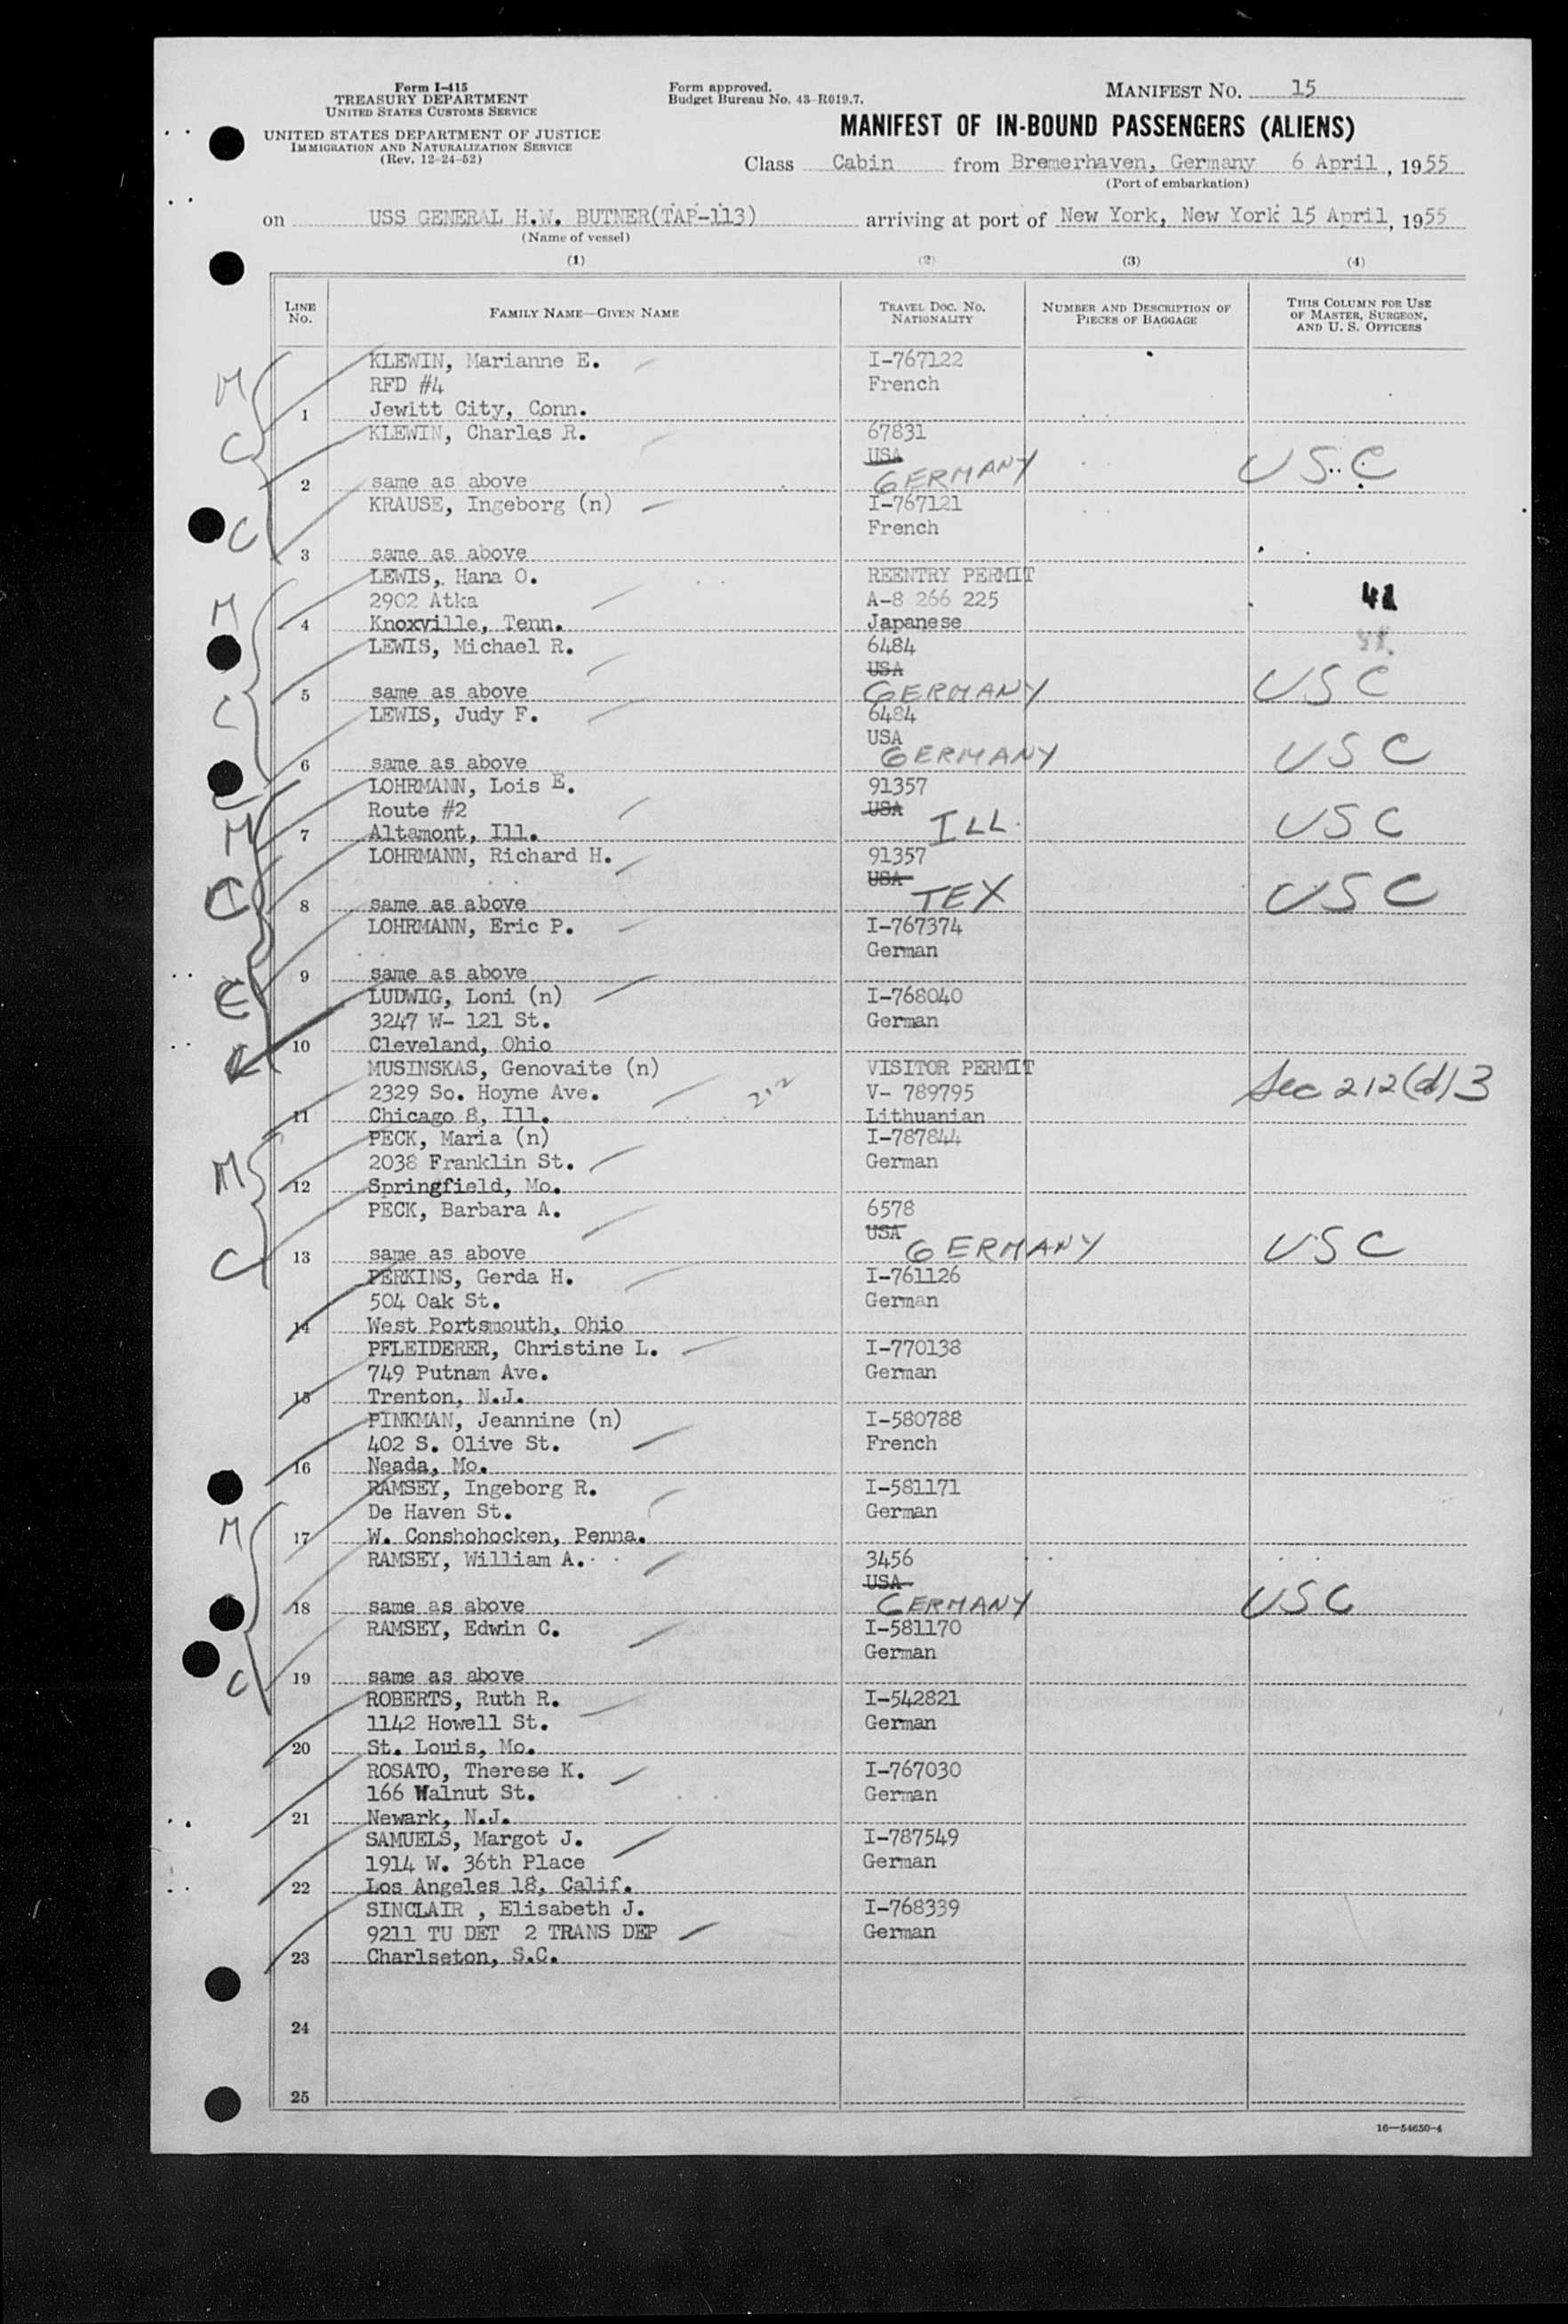 Form I-415
TREASURY DEPARTMENT
UNITED STATES CUSTOMS SERVICE
UNITED STATES DEPARTMENT OF JUSTICE
IMMIGRATION AND NATURALIZATION SERVICE
(Rev. 12-24-52)
Form approved.
Budget Bureau No. 43-R019.7.
MANIFEST NO. 15
MANIFEST OF IN-BOUND PASSENGERS (ALIENS)
Class Cabin from Bremerhaven, Germany 6 April, 1955
(Port of embarkation)
on USS GENERAL H.W. BUTNER(TAP-113) arriving at port of New York, New York 15 April, 1955
(Name of vessel)
(1) (2) (3) (4)
LINE NO. FAMILY NAME—GIVEN NAME TRAVEL DOC. NO. NATIONALITY NUMBER AND DESCRIPTION OF PIECES OF BAGGAGE THIS COLUMN FOR USE OF MASTER, SURGEON, AND U. S. OFFICERS
KLEWIN, Marianne E. I-767122
M RFD #4 French
1 Jewitt City, Conn.
C KLEWIN, Charles R. 67831
USA
2 same as above GERMANY USC
KRAUSE, Ingeborg (n) I-767121
C French
3 same as above
LEWIS, Hana O. REENTRY PERMIT
M 2902 Atka A-8 266 225 41
4 Knoxville, Tenn. Japanese
LEWIS, Michael R. 6484
USA
5 same as above GERMANY USC
C LEWIS, Judy F. 6484
USA
6 same as above GERMANY USC
LOHRMANN, Lois E. 91357
Route #2 USA
M 7 Altamont, Ill. ILL. USC
LOHRMANN, Richard H. 91357
USA
C 8 same as above TEX USC
LOHRMANN, Eric P. I-767374
German
9 same as above
C LUDWIG, Loni (n) I-768040
3247 W- 121 St. German
10 Cleveland, Ohio
MUSINSKAS, Genovaite (n) VISITOR PERMIT
2329 So. Hoyne Ave. 212 V- 789795 Sec 212(d)3
11 Chicago 8, Ill. Lithuanian
PECK, Maria (n) I-787844
M 2038 Franklin St. German
12 Springfield, Mo.
PECK, Barbara A. 6578
USA
C 13 same as above GERMANY USC
PERKINS, Gerda H. I-761126
504 Oak St. German
14 West Portsmouth, Ohio
PFLEIDERER, Christine L. I-770138
749 Putnam Ave. German
15 Trenton, N.J.
PINKMAN, Jeannine (n) I-580788
402 S. Olive St. French
16 Neada, Mo.
RAMSEY, Ingeborg R. I-581171
De Haven St. German
M 17 W. Conshohocken, Penna.
RAMSEY, William A. 3456
USA
18 same as above GERMANY USC
RAMSEY, Edwin C. I-581170
German
C 19 same as above
ROBERTS, Ruth R. I-542821
1142 Howell St. German
20 St. Louis, Mo.
ROSATO, Therese K. I-767030
166 Walnut St. German
21 Newark, N.J.
SAMUELS, Margot J. I-787549
1914 W. 36th Place German
22 Los Angeles 18, Calif.
SINCLAIR , Elisabeth J. I-768339
9211 TU DET 2 TRANS DEP German
23 Charlseton, S.C.
24
25
16—54650-4